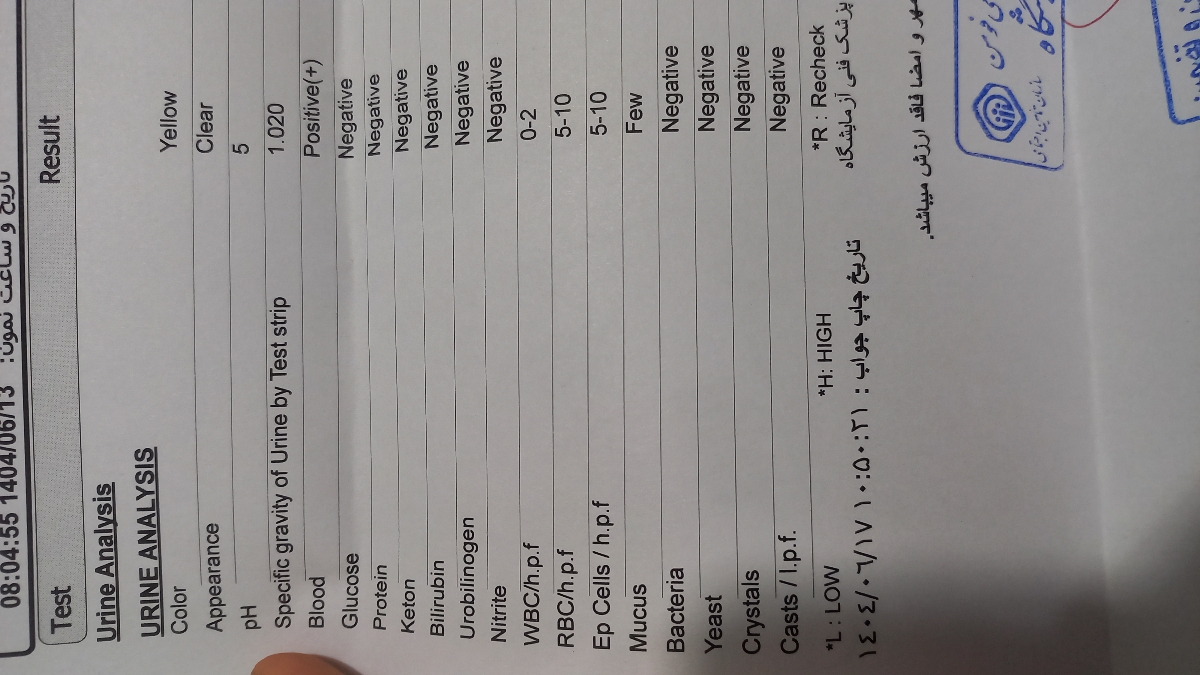 تاریخ و ساعت نمونه: 08:04:55 1404/06/13
Test Result
Urine Analysis
URINE ANALYSIS
Color Yellow
Appearance Clear
pH 5
Specific gravity of Urine by Test strip 1.020
Blood Positive(+)
Glucose Negative
Protein Negative
Keton Negative
Bilirubin Negative
Urobilinogen Negative
Nitrite Negative
WBC/h.p.f 0-2
RBC/h.p.f 5-10
Ep Cells / h.p.f 5-10
Mucus Few
Bacteria Negative
Yeast Negative
Crystals Negative
Casts / l.p.f. Negative
*L : LOW *H: HIGH *R : Recheck
تاریخ چاپ جواب : ١٤٠٤/٠٦/١٧ ١٠:٥٠:٢١
پزشک فنی آزمایشگاه
مهر و امضا فاقد ارزش میباشد.